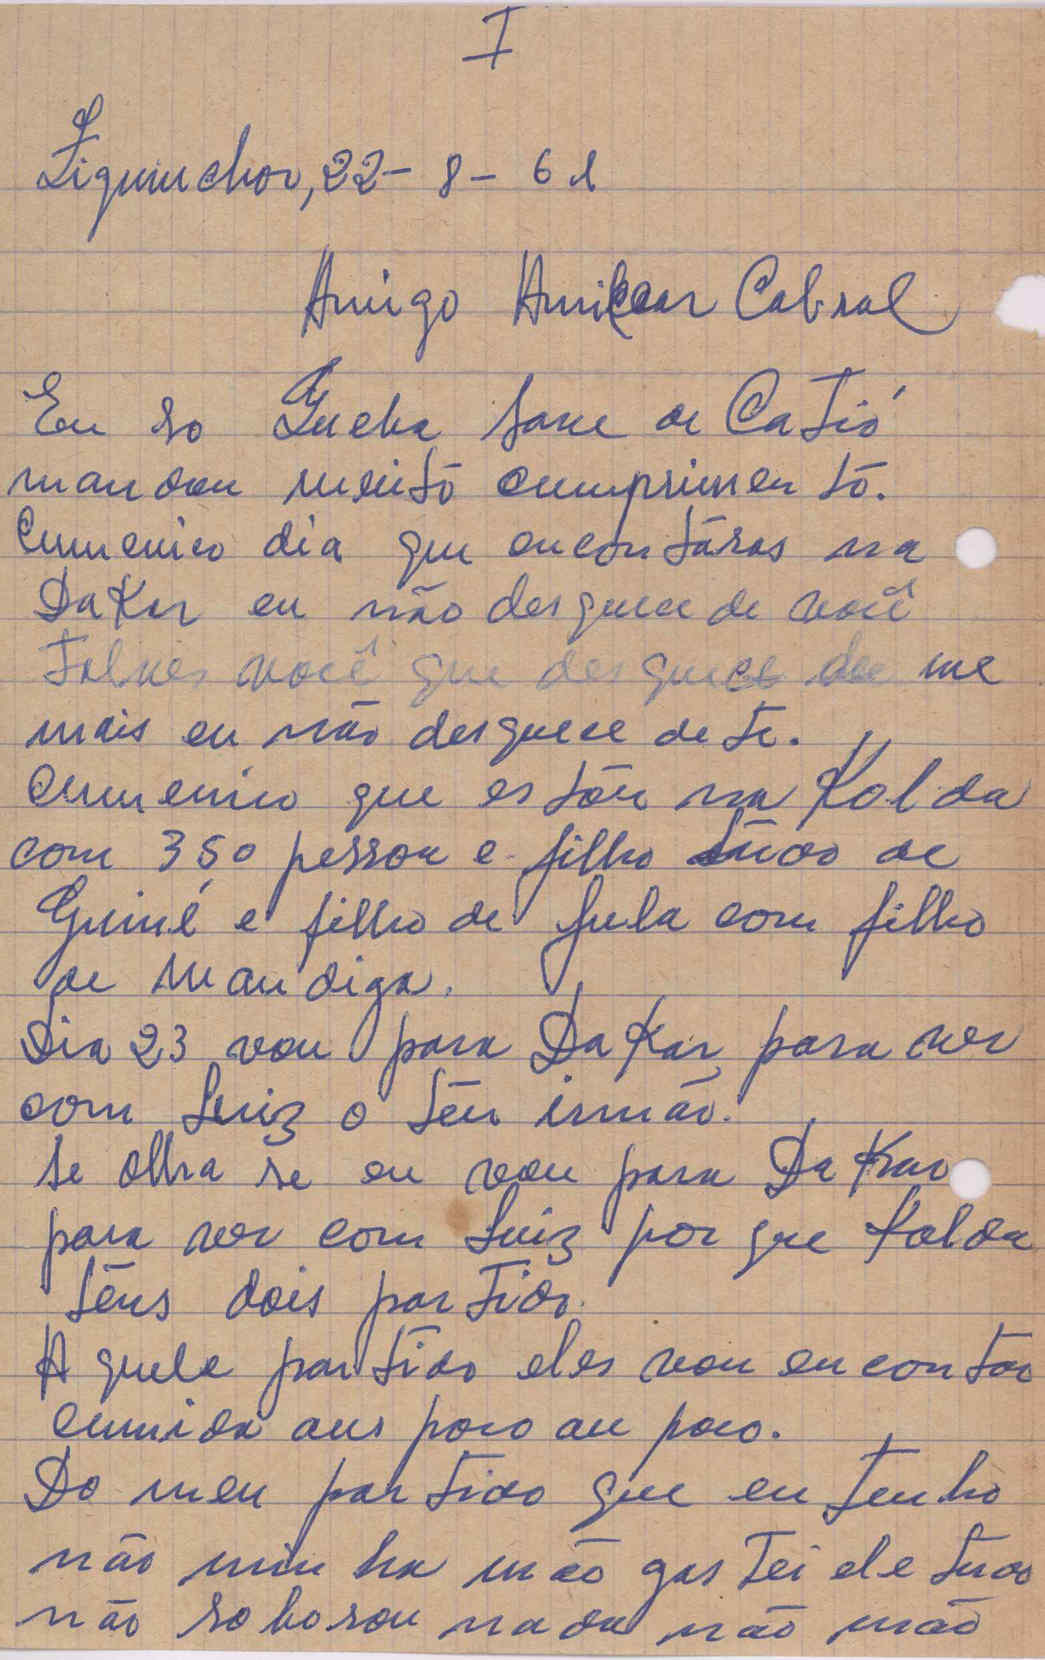 I
Ziguinchor, 22- 8- 61
Amigo Amilcar Cabral
Eu so Gueba Sane de Catió
mandou muitō cumprimentō.
Cumenico dia que encontāras na
DaKar eu não desquece de você
Talves você que desquece de me
mais eu não desquece de te.
Cumenico que estōu na Kolda
com 350 pessoa e filho tūdo de
Guiné e filho de fula com filho
de Mandiga.
Dia 23 vou para DaKar para ver
com Luiz o tēu irmão.
Se olha se eu vou para DaKar
para ver com Luiz por que Kolda
tēns dois partido.
Aquele partido eles vou encontar
cumida aus poco au poco.
Do meu partido que eu tenho
não minha mão gastei ele tudo
não sobosou nada não mão